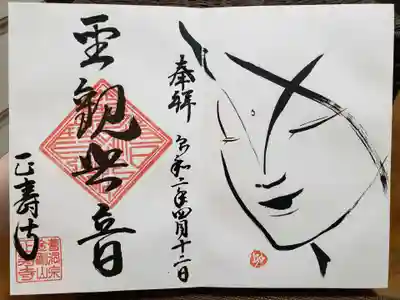 奉拝
令和二年四月十二日
聖観世音
正壽寺
曹洞宗